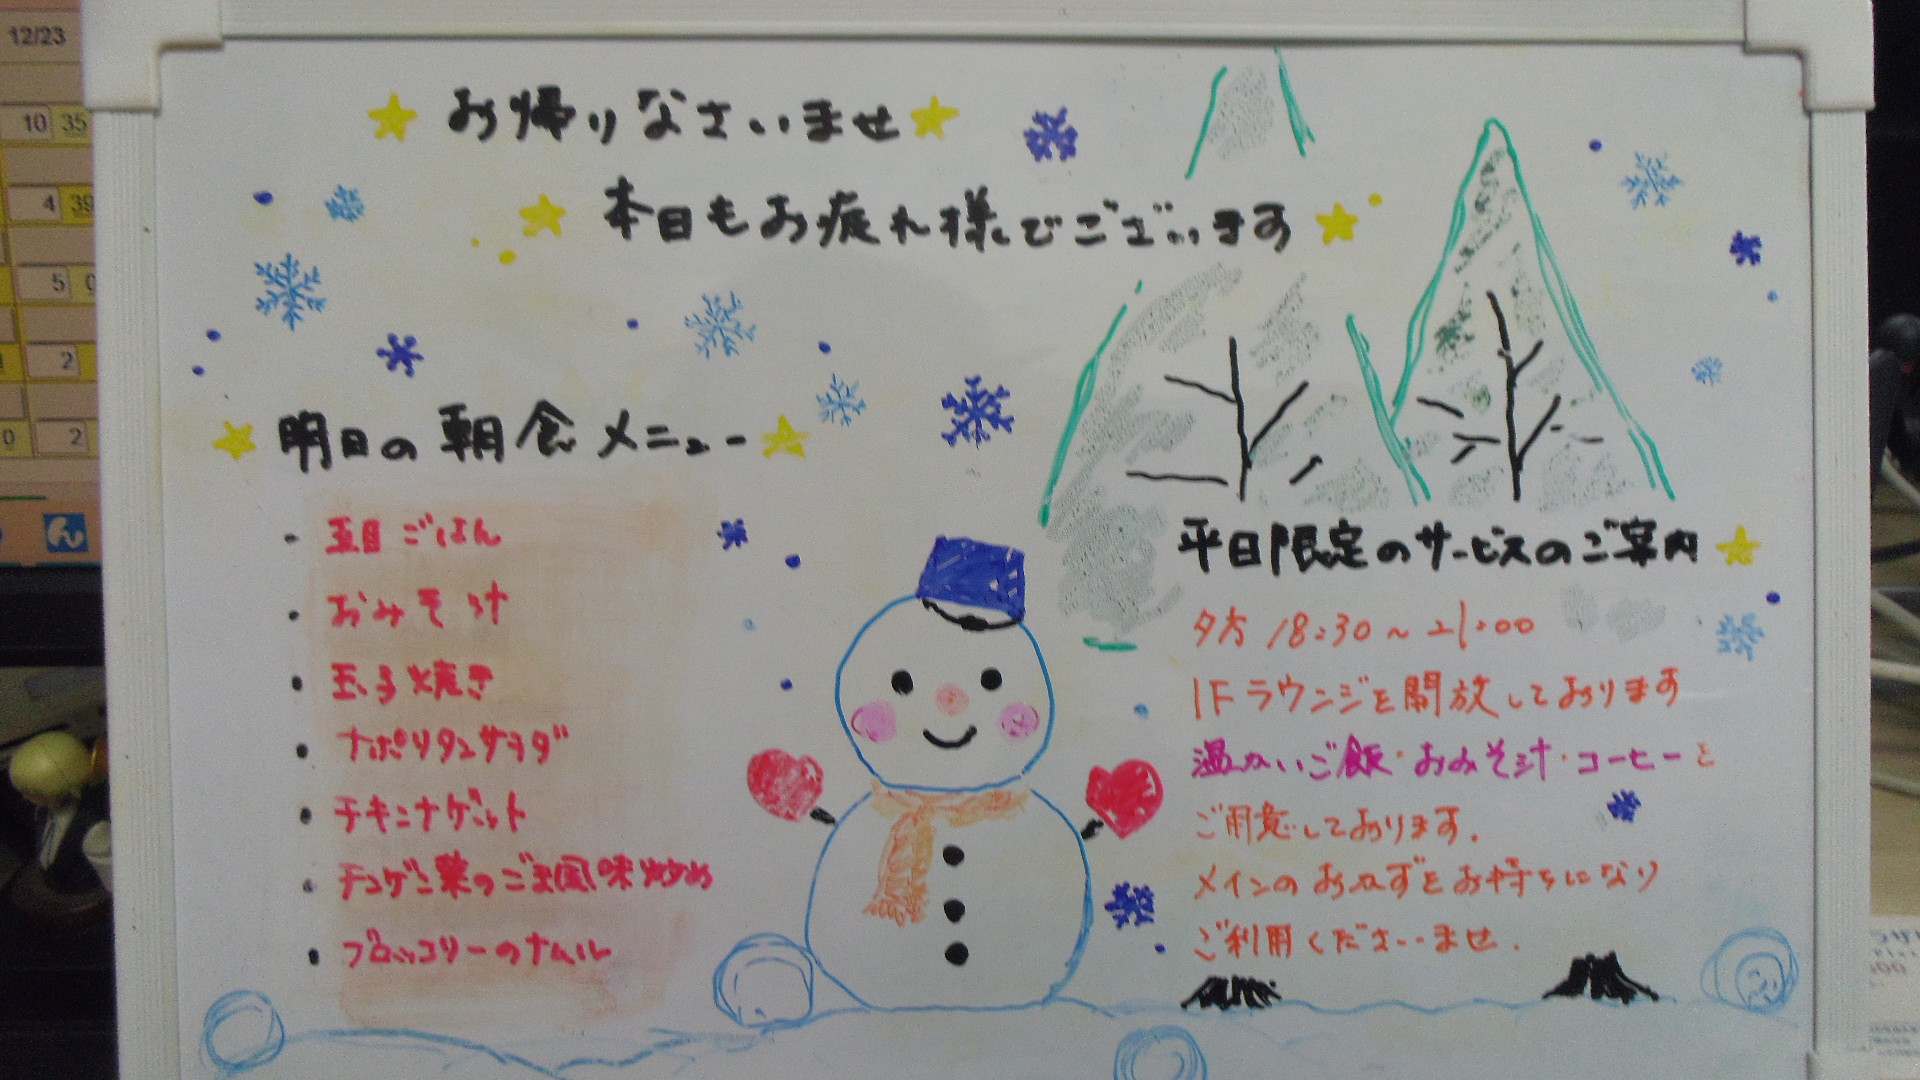 12/23
10 35
4 39
5 0
2
0 2
ん
お帰りなさいませ
本日もお疲れ様でございます
明日の朝食メニュー
・五目ごはん
・おみそ汁
・玉子焼き
・ナポリタンサラダ
・チキンナゲット
・チンゲン菜のごま風味炒め
・ブロッコリーのナムル
平日限定のサービスのご案内
夕方 18:30~21:00
1Fラウンジを開放しております
温かいご飯・おみそ汁・コーヒーを
ご用意しております.
メインのおかずをお持ちになり
ご利用くださいませ.